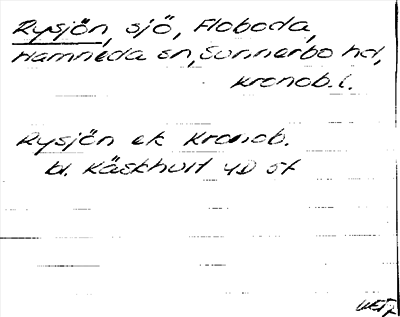 Rysjön, sjö, Floboda,
Hamneda sn, Sunnerbo hd,
Kronob. l.
Rysjön ek Kronob.
bl. Käskhult 4D st